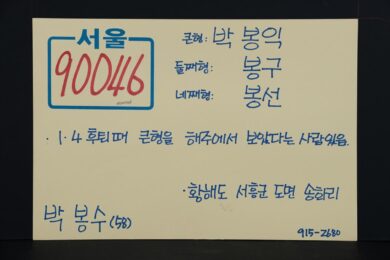 서울
90046
큰형: 박봉익
둘째형: 봉구
네째형: 봉선
· 1·4 후퇴때 큰형을 해주에서 보았다는 사람있음.
· 황해도 서흥군 도면 송화리
박봉수(58)
915-2680